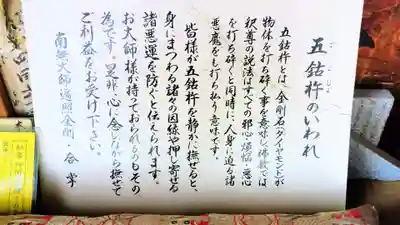 五鈷杵のいわれ
五鈷杵とは、金剛石(ダイヤモンド)が
物体を打ち砕く事を意味し佛教では
釈尊の説法はすべての邪心・煩悩・悪心
を打ち砕くと同時に、人身に迫る諸
悪魔をも打ち払う意味です。
皆様が五鈷杵を静かに撫せると、
身にまつわる諸々の因縁や押し寄せる
諸悪運を防ぐと伝えられます。
お大師様が持っておられるのもその
為です。是非心に念じながら撫せて
ご利益をお受け下さい。
南無大師遍照金剛・合掌